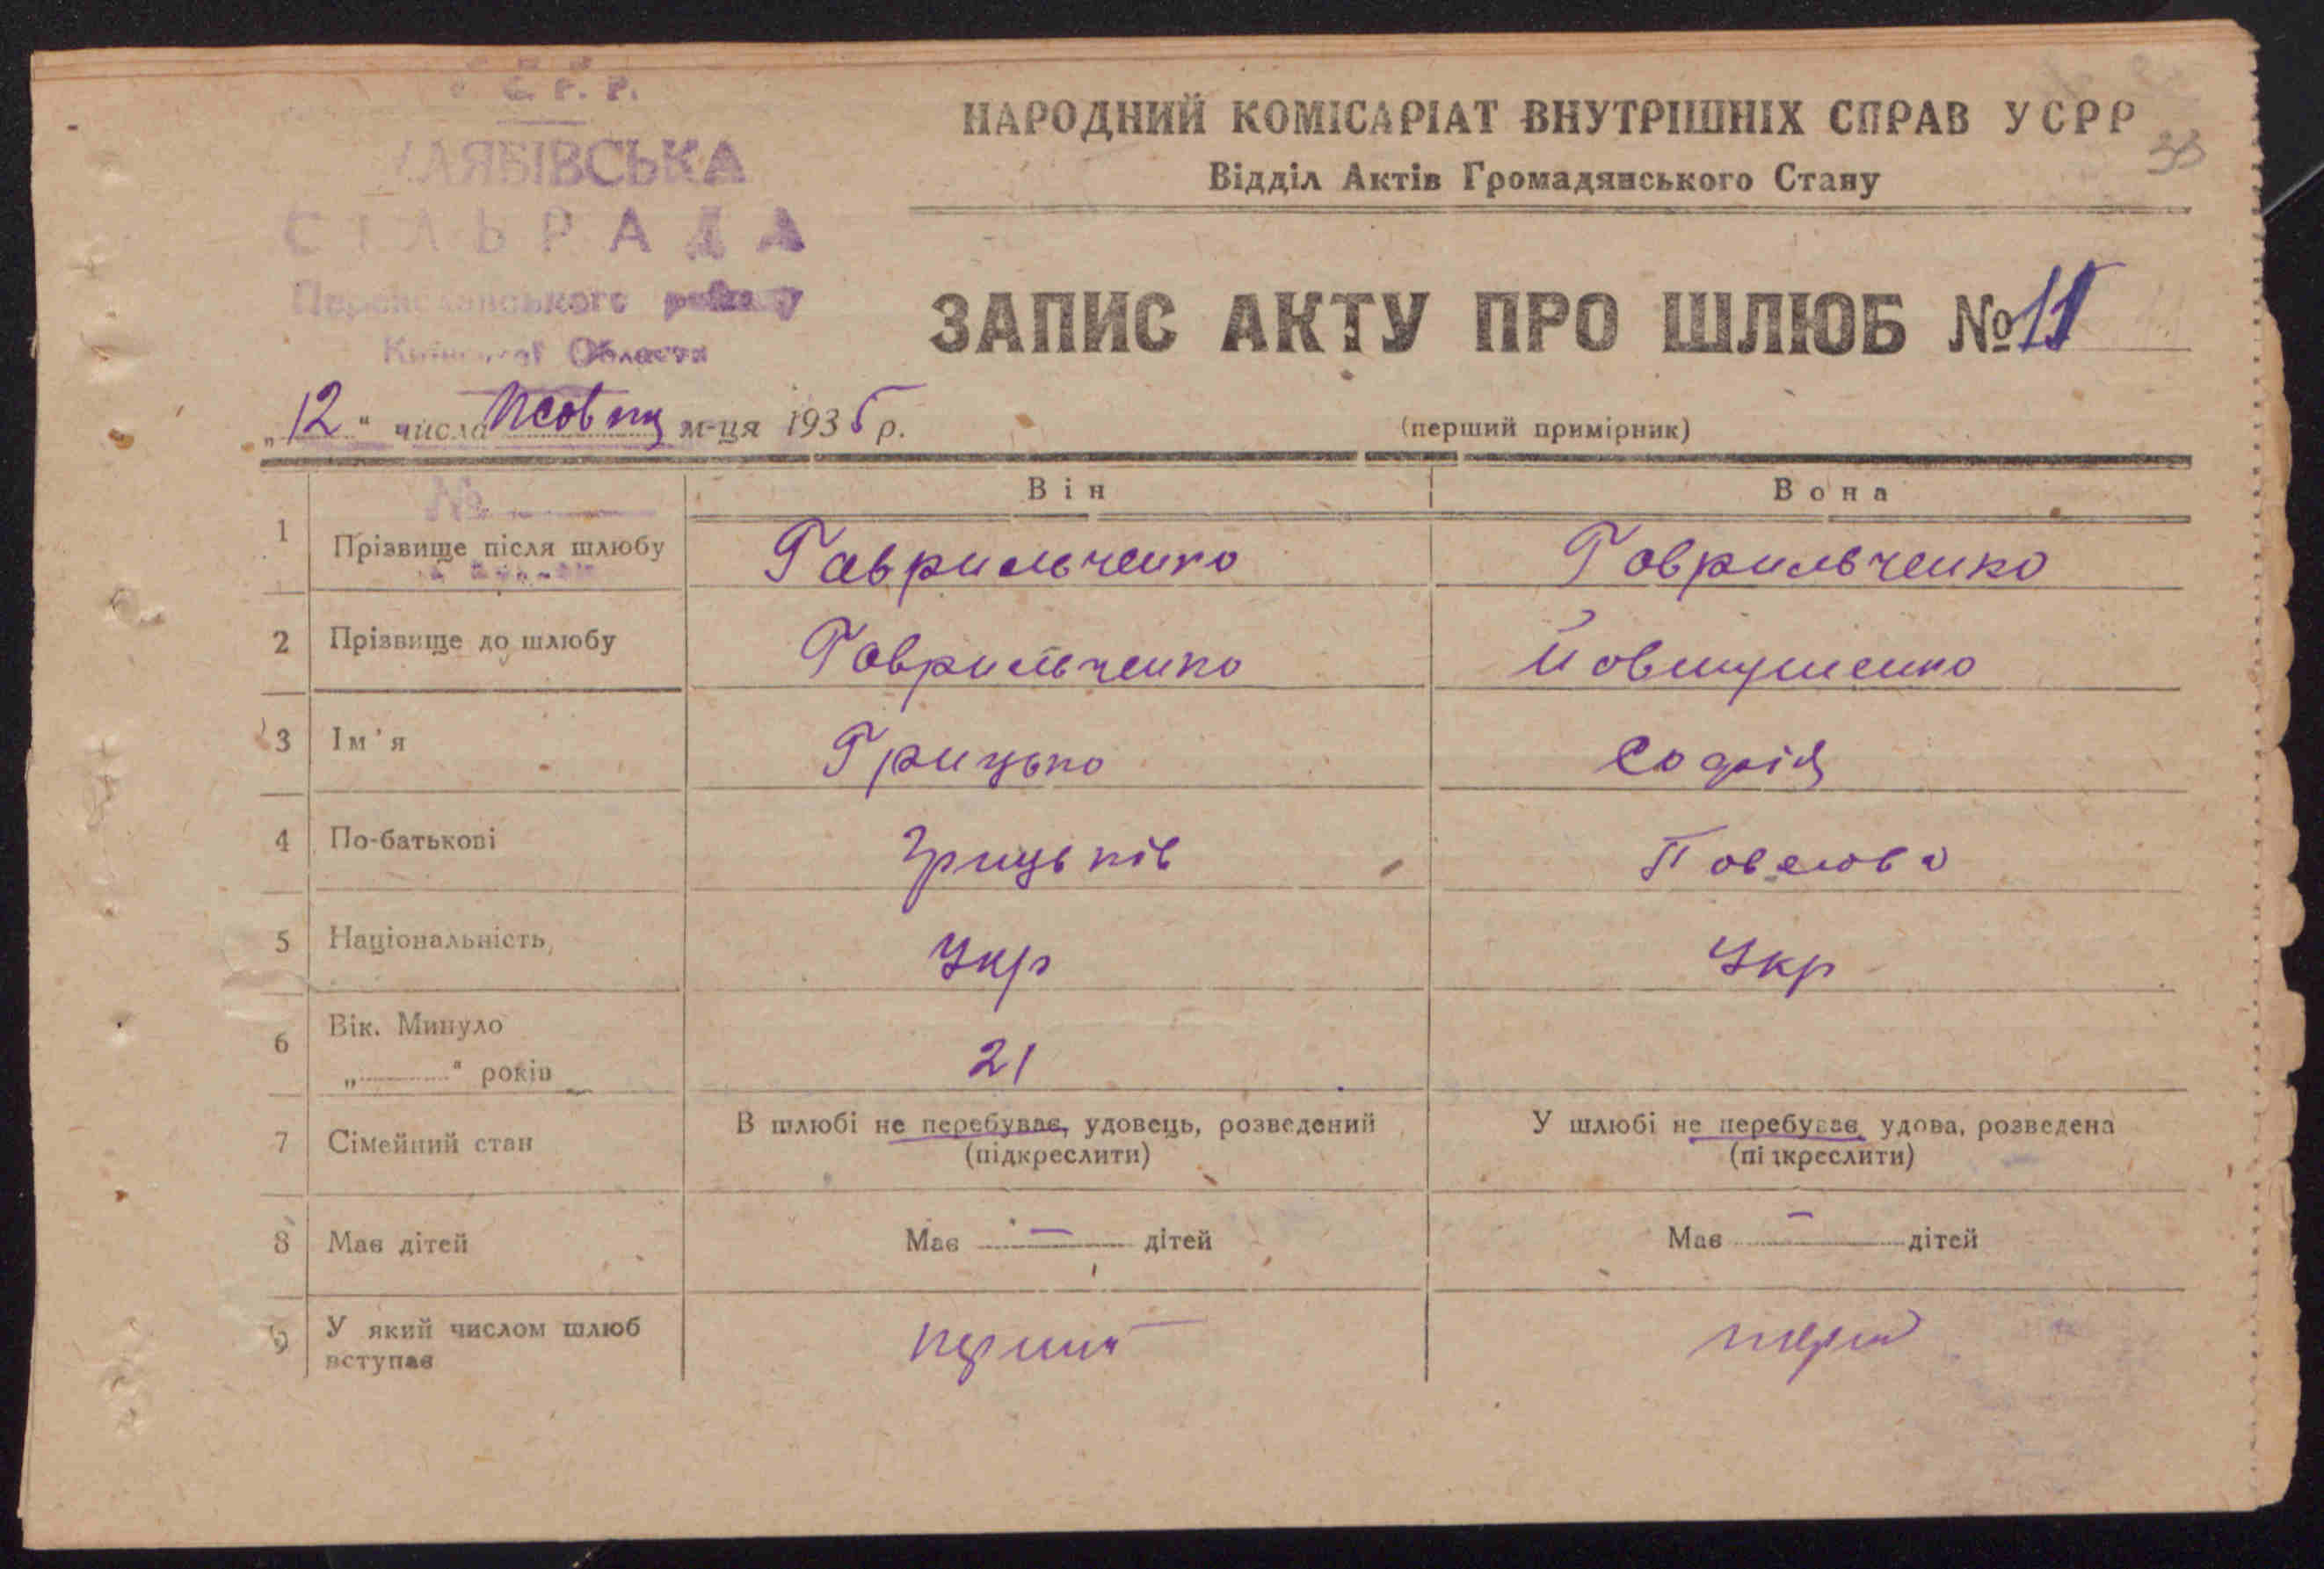 С. Р. Р.
СІЛЬРАДА
району
Області
НАРОДНИЙ КОМІСАРІАТ ВНУТРІШНІХ СПРАВ УСРР
33
Відділ Актів Громадянського Стану
ЗАПИС АКТУ ПРО ШЛЮБ № 11
„12" числа м-ця 1935 р.
(перший примірник)
Він Вона
№
1 Прізвище після шлюбу Гаврильченко Гаврильченко
2 Прізвище до шлюбу Гаврильченко
3 Ім'я Грицько Софія
4 По-батькові Грицьків Павлова
5 Національність Укр Укр
6 Вік. Минуло
„ " років 21
7 Сімейний стан В шлюбі не перебуває, удовець, розведений У шлюбі не перебуває, удова, розведена
(підкреслити) (підкреслити)
8 Має дітей Має — дітей Має — дітей
9 У який числом шлюб
вступає перший перш